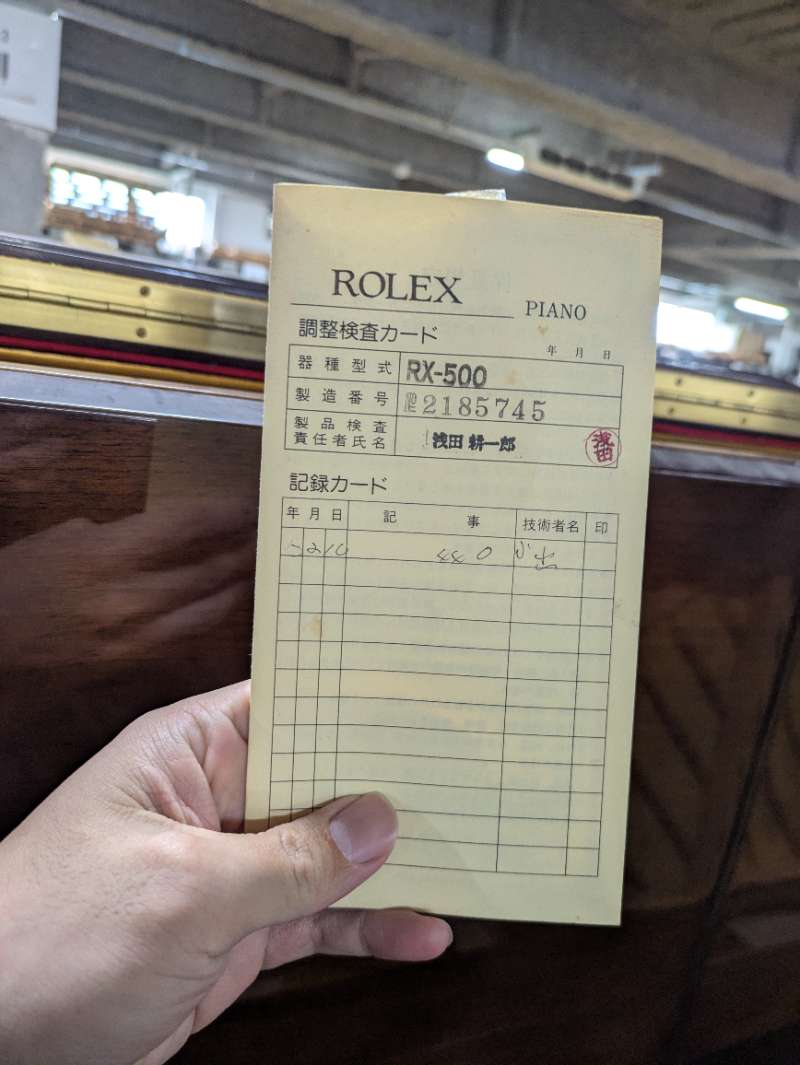 ROLEX
PIANO
調整検査カード
年 月 日
器種型式 RX-500
製造番号 2185745
製品検査
責任者氏名 浅田 耕一郎
記録カード
年 月 日 記 事 技術者名 印
440